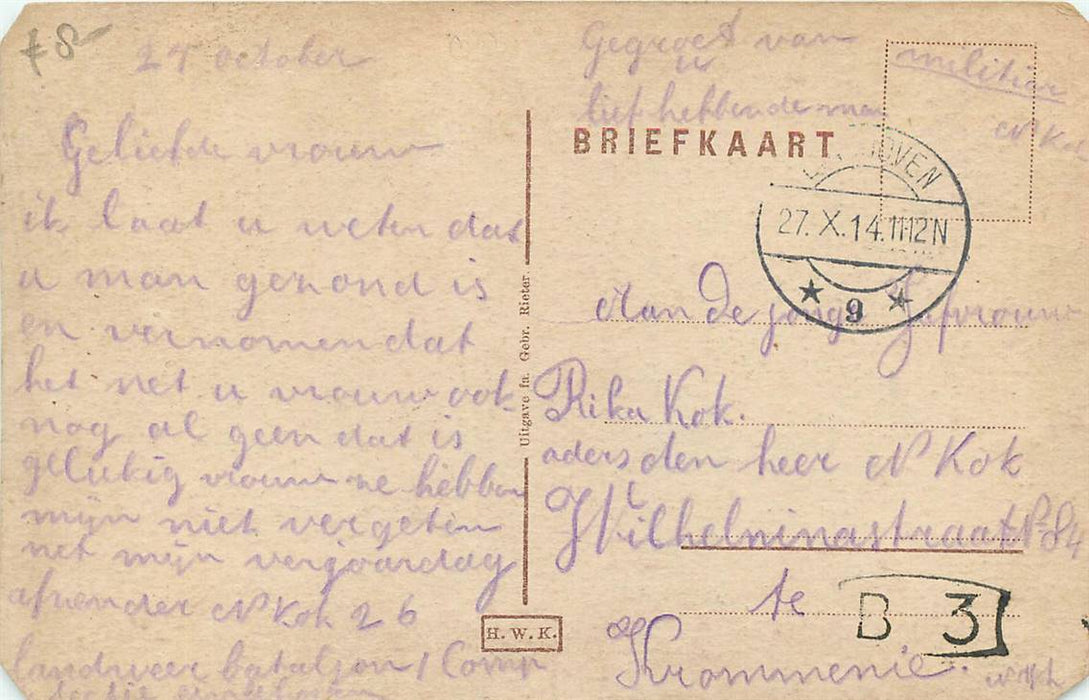 f 8-
27 october
Geliefde vrouw
ik laat u weten dat
u man gezond is
en vernomen dat
het net u vrouw ook
nog al geen dat is
gelukig vrouw ze hebben
mijn niet vergeten
net mijn verjaardag
afzender N Kok 26
landweer bataljon 1 Comp
Gegroet van
u
liefhebbende man
militair
N Kok
BRIEFKAART
HOVEN
27.X.14.11-12N
9
Uitgave fa. Gebr. Rieter.
H. W. K.
Aan De jonge Jufvrouw
Rika Kok.
aders den heer N Kok
Wilhelninastraat No 84
te
B 3
Krommenie.